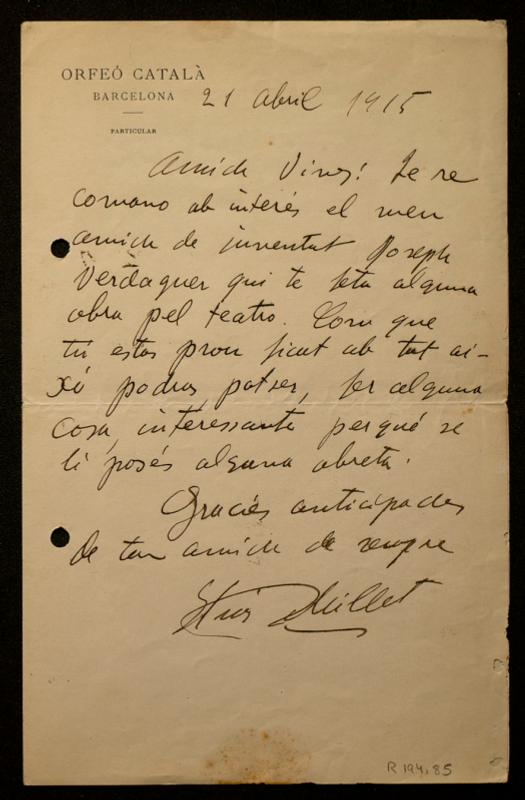 ORFEÓ CATALÀ
BARCELONA
21 abril 1915
PARTICULAR
Amich Vives! Te re
comano ab interés el meu
amich de juventut Joseph
Verdaguer qui te feta alguna
obra pel teatro. Com que
tú estas prou ficat ab tot ai-
xó podras, potser, fer alguna
cosa, interessante perqué se
li posés alguna obreta.
Gracies anticipades
de ton amich de sempre
Lluis Millet
R 194,85